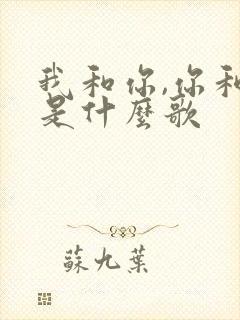 我和你,你和
是什麼歌
蘇九葉